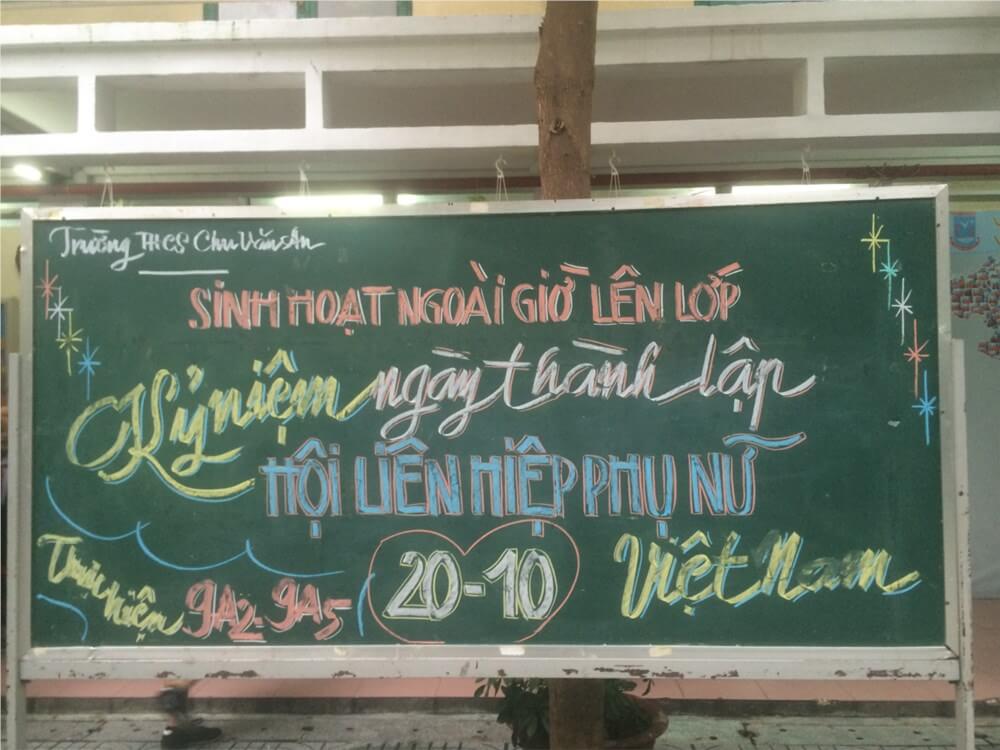 Trường THCS Chu Văn An
SINH HOẠT NGOÀI GIỜ LÊN LỚP
Kỷ niệm ngày thành lập
HỘI LIÊN HIỆP PHỤ NỮ
Việt Nam
20-10
Thực hiện 9A2-9A5